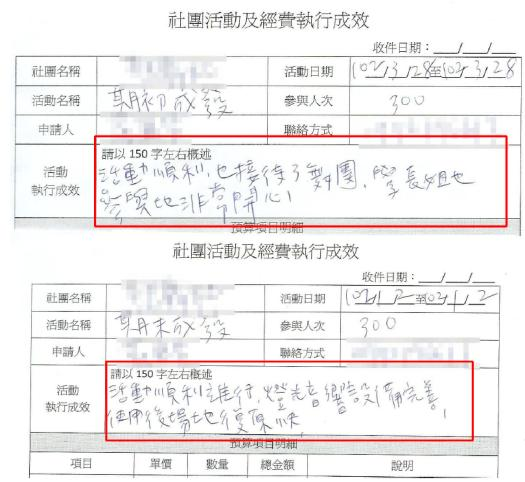 社團活動及經費執行成效
收件日期：___/___/___
社團名稱 活動日期 102/3/28至102/3/28
活動名稱 期初成發 參與人次 300
申請人 聯絡方式
活動執行成效 請以 150 字左右概述
活動順利,也接待了舞團,學長姐也
參與地非常開心!
預算項目明細
社團活動及經費執行成效
收件日期：___/___/___
社團名稱 活動日期 102/1/2至102/1/2
活動名稱 期末成發 參與人次 300
申請人 聯絡方式
活動執行成效 請以 150 字左右概述
活動順利進行,燈光音響設備完善,
使用後場地復原快,
預算項目明細
項目 單價 數量 總金額 說明